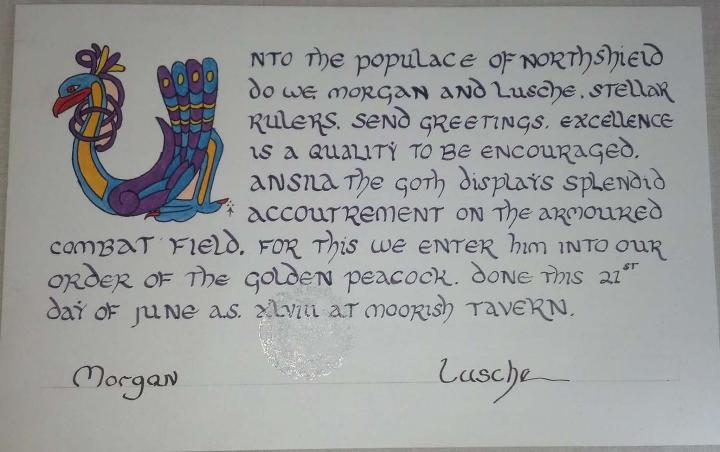 UNTO the populace of Northshield
do we, Morgan and Lusche, stellar
rulers, send greetings. Excellence
is a quality to be encouraged.
Ansila the Goth displays splendid
accoutrement on the armoured
combat field. For this we enter him into our
Order of the Golden Peacock. Done this 21st
day of June A.S. xlviii at Moorish Tavern.
Morgan
Lusche